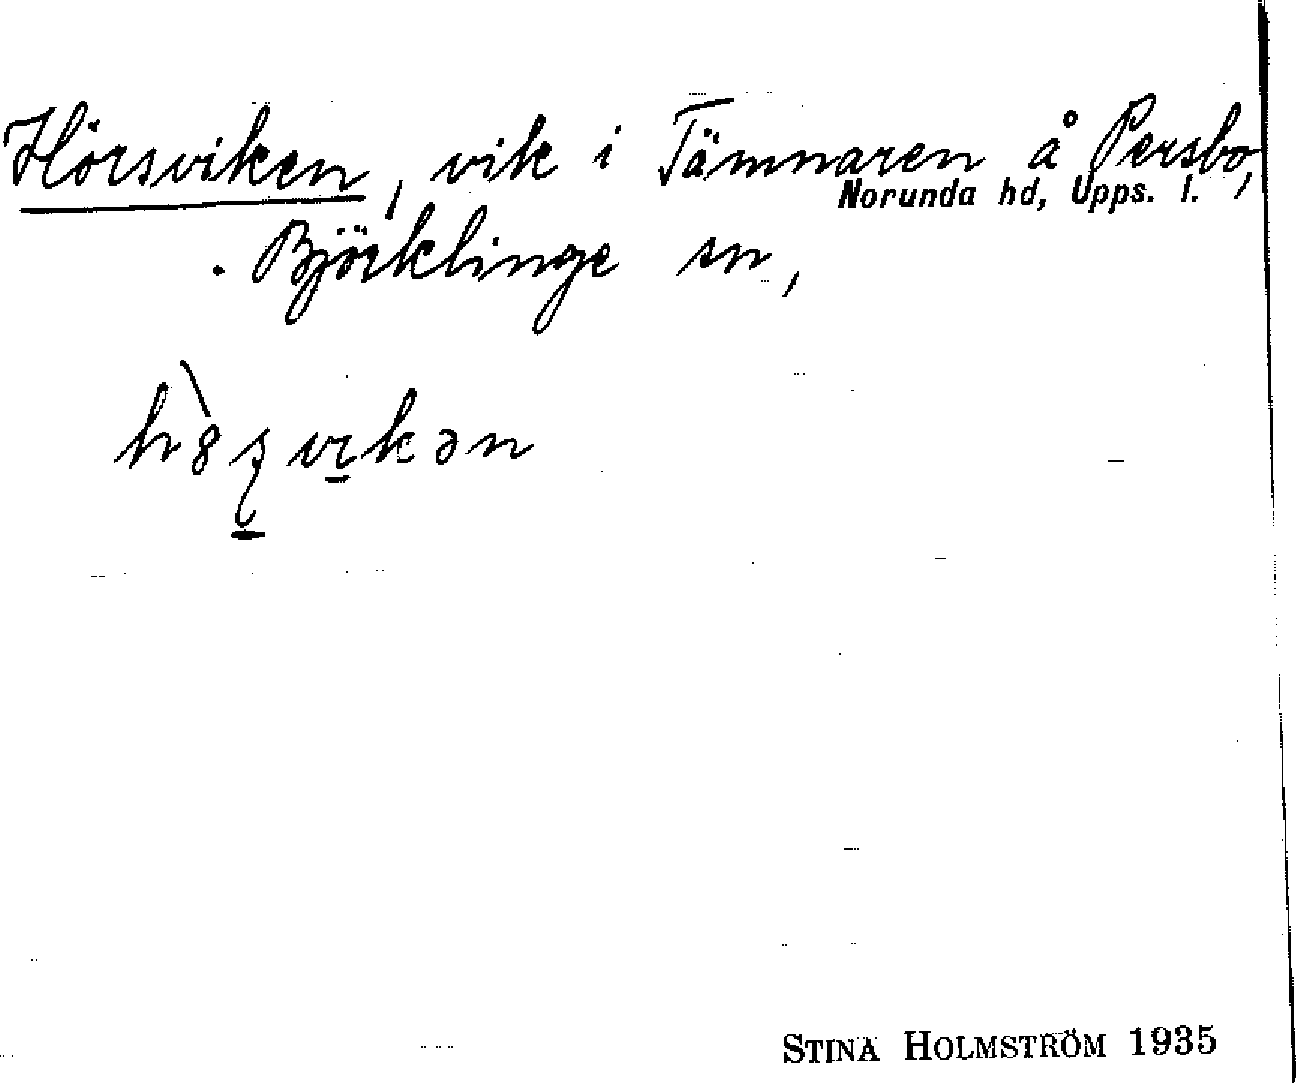 Hörsviken, vik i Tämnaren å Persbo,
Norunda hd, Upps. l.
Björklinge sn,
STINA HOLMSTRÖM 1935